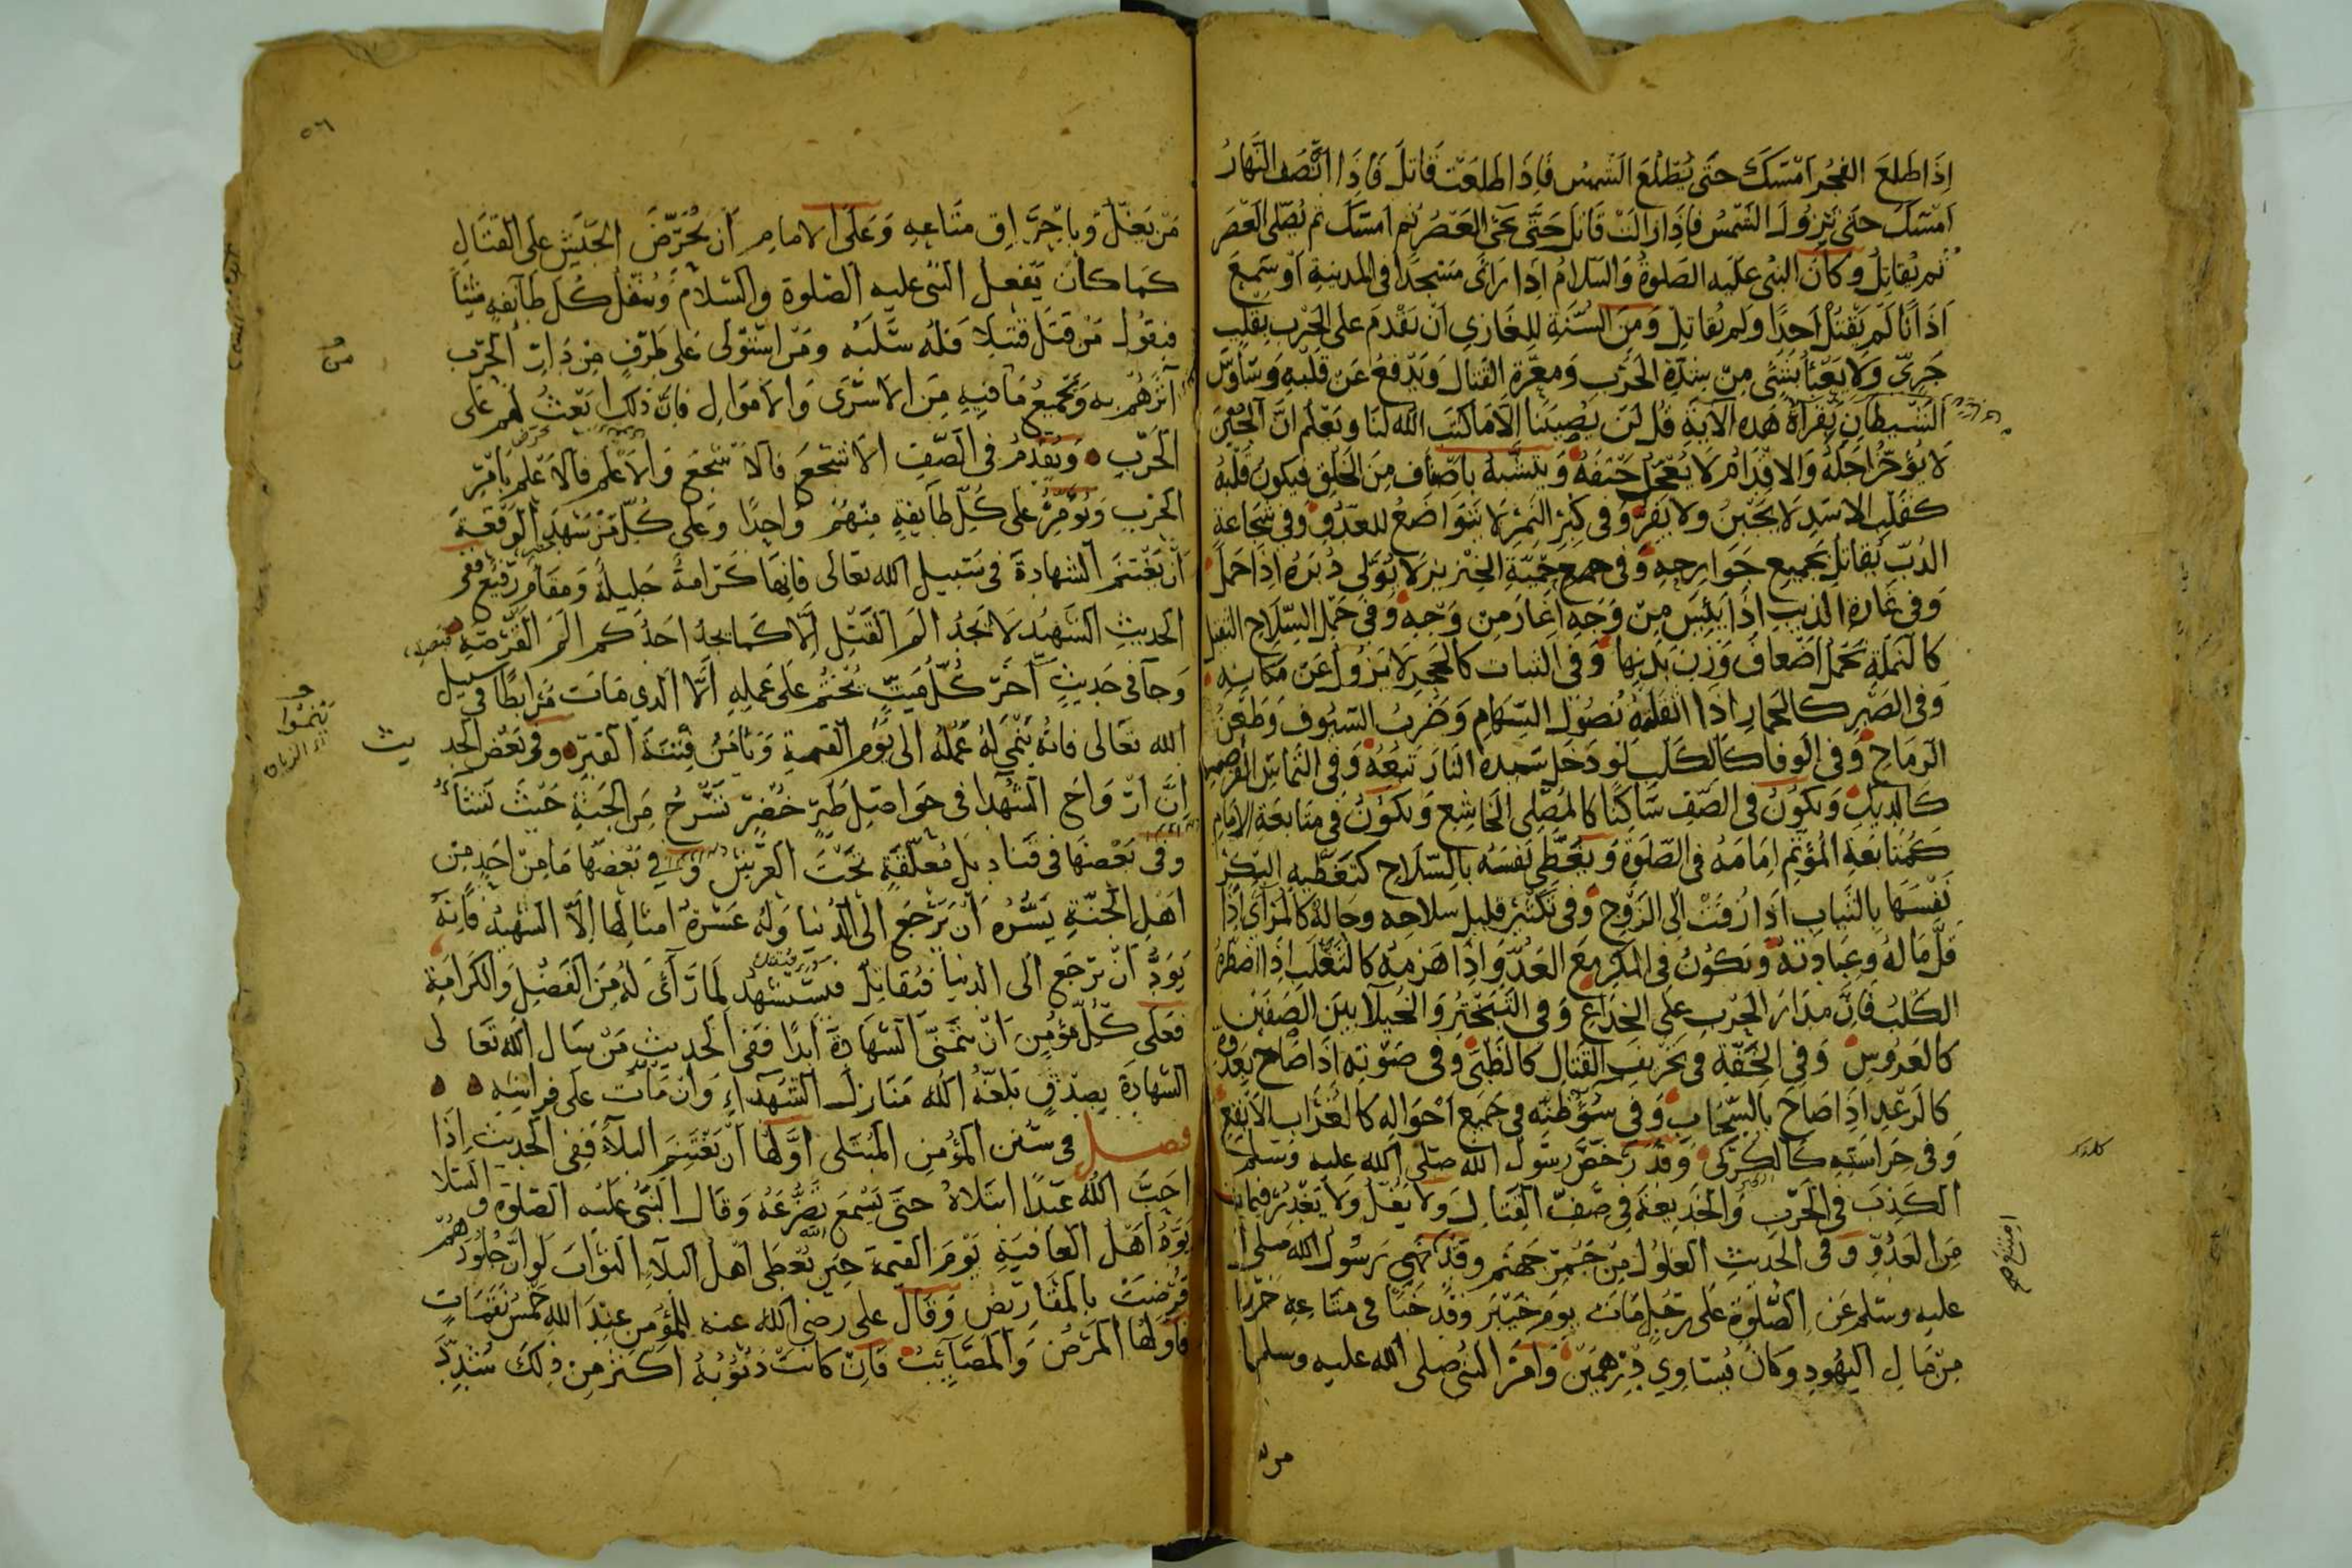 اِذَا طَلَعَ الفجُر اَمْسَكَ حتَى يُطْلَع الشمس فَاِذَا طَلَعَت قَاتَلَ فَاِذَا انْتَصَف النَهارُ
اَمْسَكَ حتَى تزولَ الشَمْسُ فاِذَا زالَتْ قَاتَل حَتَّى يجئ العَصْرُ ثم امسَكَ ثم يُصَلى العَصْرَ
ثم يُقاتِلُ وكانَ النبىُ عَلَيه الصَلوةُ وَالسَلامُ اِذَا رَأى مَسْجدًا فى المدينةِ اَو سَمِعَ
اَذَانًا لَم يَقْتُلْ اَحدًا ولم يُقاتِلْ وَمِنَ السُنّةِ لِلغَازِي اَنْ يَقْدمَ على الحَرْب بقَلْبٍ
جَرِيّ وَلا يَعْبَأُ بِشَئٍ مِنْ شِدَّةِ الحَرْب وَمعرَّةِ القتال وَيَدْفَعُ عَنْ قلبهِ وَسَاوِسَ
الشَيطانِ بقراءةِ هَذه الآيَةِ قُل لَن يُصِيبَنا اِلاّ مَا كَتَبَ الله لنَا ويَعْلَم انَّ الجُبْنَ
لا يُؤَخّرُ اَجَلَهُ وَالاِقدَامُ لا يُعَجّلُ حَتفهُ وَيَتشَبَّهُ باَصْنَاف مِنَ الخَلق فيكونُ قَلْبُهُ
كقَلْبِ الاسَدِ لا يَجْبُنُ ولا يَفِرُّ وَفى كِبْرِ النَمِرْ لا يَتَواضَعُ للعَدُوِّ وَفى شَجَاعةِ
الدُبّ يُقَاتِلُ بجميع جَوَارِحِهِ وَفى حَمِيّةِ الخِنْزيْر لا يُوَلّى دُبُرَهُ اِذَا حَمَلَ
وَفى غارةِ الذيبِ اِذَا يَئِسَ مِنْ وَجهٍ اَغَارَ مِن وَجْهٍ وَفى حَمْلِ السّلاحِ الثقيل
كالنَملَةِ تَحْمل اَضْعافَ وَزنِ بَدَنِها وَفى الثبات كالحَجر لا يَزُول عَنْ مَكانِهِ
وَفى الصَّبْرِ كالحمار اذا اثْقَلَتْهُ نُصُولُ السِّهَام وَضَربُ السُيُوف وَطَعْنُ
الرّمَاح وَفى الوفا كالكَلب لو دَخَلَ سَيّدُه النارَ تبِعَهُ وَفى التماس الفرصَةِ
كالدِيكِ وَيكوُنُ فى الصّف سَاكِنًا كالمصَلى الخاشِع وَيكوُن فى متابعَةِ الاِمَامِ
كمُتَابعَةِ المُؤتمّ اِمَامَهُ فى الصَلوة وَيُغَطّى نفسَهُ بالسّلاح كتَغْطيةِ البكْرِ
نَفْسَهَا بالثياب اذا زُفّتْ الى الزوجِ وَفى تَكْثيْرِ قليل سلاحِه وحَاله كالمُرَائى اِذَا
قلَّ مَاله وعِبادتُه وَيكوُنُ فى المكرِ مَعَ العَدُوِّ اِذَا هَزمَهُ كالثعْلَب اِذَا اضطَرّهُ
الكَلبُ فَاِنَّ مدارَ الحَرْب على الخِدَاعِ وَفى التَبَخْتُرِ وَالخُيلآ بين الصَفَيْنِ
كالعَرُوسِ وَفى الخِفّةِ فى تخريف القتال كالظَبْى وَفى صَوْتِه اِذَا صَاحَ بعَدُوّهِ
كالرَعْدِ اِذَا صَاحَ بالسّحَاب وَفى سُوءِ ظَنّه فى جميع اَحْوَالِه كالغُرَاب الاَبْقَع
وَفى حِرَاسَتِهِ كالكُركى وَقَد رَخّصَ رسُول الله صَلّى الله عليه وَسَلم
الكَذِبَ فى الحَرْب وَالخَدِيعَةَ فى صَفّ القِتَالِ وَلا يَغُلّ وَلا يَغْدِر فيمَا
مِنَ العَدُوِّ وفى الحَديثِ الغلُول مِنْ جَمْرِ جَهَنّم وقَد نَهى رسُول الله صلى الله
عليه وسلم عَنِ الصَّلوةِ عَلى رَجلٍ مَات يوم خَيْبَر وقَد خَبَّا فى متاعِه خَرَزًا
مِنْ مَالِ اليَهُودِ وكَانَ يُسَاوِي دِرْهَمَيْن وَاَمَرَ النبى صلى الله عليه وسلم
مَنْ يَغُلّ وباِحْرَاقِ مَتاعِهِ وَعَلَى الامام اَنْ يُحَرِّضَ الجَيْشَ على القتَالِ
كمَا كانَ يَفعل النَبى عليه الصَلوة والسَلام وَيُنَفّلَ كُلّ طَآئفةٍ شَيْئًا
فيقُول مَنْ قَتَل قَتيلًا فَلَهُ سَلَبُه ومَن استَوْلَى عَلى طَرَفٍ مِنْ دَارِ الحَرْب
آثرهُمْ به وَبجميع مَا فيهِ مِنَ الاسْرَى وَالامْوَال فانَّ ذلك ابْعَثُ لهم عَلى
الحَرْبِ وَيُقَدِّمُ فى الصَّفِ الاشْجَعَ فالاشْجَعَ وَالاعْلَمَ فالاعْلَم باَمْرِ
الحَرْبِ وَيُؤَمِّرُ عَلى كُلّ طآيفةٍ مِنْهُمْ وَاحِدًا وَعلى كُلّ مَنْ شَهِدَ الوَقْعَةَ
اَنْ يَغْتَنِمَ الشهَادةَ فى سَبيل الله تعَالى فاِنَّهَا كرَامةٌ جَليلةٌ وَمقَام رَفيعٌ ففى
الحَديثِ الشَهِيْدُ لا يَجِدُ الَمَ القَتْلِ اِلّا كَمَا يجدُ احَدُكم الَمَ القَرْصَةِ
وَجآ فى حَديثٍ آخَرَ كُلّ مَيّتٍ يُخْتَمُ عَلى عَمَلِهِ اِلّا الذي مَاتَ مُرَابطًا فى سبيل
الله تعَالى فانّهُ يَنْمي لهُ عَملُهُ الى يَوْم القيمةِ وَيَأمَنُ فِتنَةَ القَبْرِ وفى بَعْض الحَد
يث
اِنَّ اَرْوَاحَ الشُهَدَا فى حَواصِل طَيْرٍ خُضْرٍ تَسْرَحُ مِنَ الجَنةِ حَيْثَ تَشَآءُ
وَفى بَعْضهَا فى قَنَاديل مُعَلّقَةٍ تَحْتَ العَرْشِ وَفى بَعْضِهَا مَا مِنْ اَحَدٍ مِنْ
اَهْل الجَنّةِ يَسُرّهُ اَنْ يَرْجِعَ الى الدُنيا وَلَهُ عَشْرَةُ امثالها اِلّا الشَهِيْدُ فَاِنّهُ
يَوَدّ اَنْ يَرْجِعَ الى الدنيا فَيُقاتِلَ فيُسْتَشْهَدَ لمَا رَآى لهُ مِنَ الفَضْلِ وَالكَرامَةِ
فَعَلى كُلّ مُؤْمِنٍ اَنْ يَتمَنّى الشهادةَ ابَدًا فَفى الحَديثِ مَنْ سَال الله تعَا لى
الشهَادَةَ بصِدْقٍ بَلّغَهُ الله مَنَازلَ الشُهَدَآءِ وَاِنْ مَاتَ عَلى فِرَاشِهِ
فصل فى سُنَن المؤمِنِ المُبْتَلى اَوّلهَا اَنْ يَغْتَنِمَ البلآءَ فَفى الحَديثِ اِذَا
اَحَبَّ الله عَبْدًا ابتَلاهُ حتىَ يَسْمَعَ تَضرّعَهُ وَقَالَ النَبىُ عَلَيْه الصَلوة وَالسَلا
يَوَدُّ اَهْل العَافيَةِ يَوْمَ القيمة حِينَ يُعْطِى الله اَهْلَ البلآءِ الثوابَ لَو اَنّ جُلُودَهُمْ
قُرِضَتْ بالمقَارِيضِ وَقَالَ على رضى الله عنه للمؤمن عِنْدَ الله خَمْسُ نَقمَاتٍ
فاَوّلهَا المَرَضُ وَالمصَآئِبُ فَاِنْ كانَتْ ذُنُوبُهُ اكثر مِنْ ذلِكَ شُدِّدَ